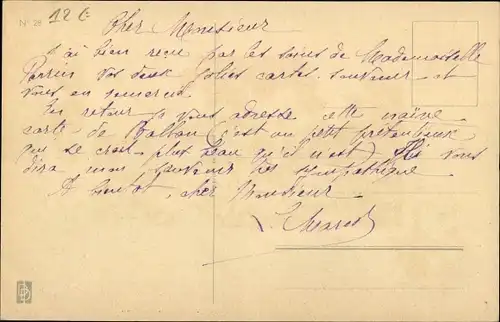 N° 28
12 €
Cher Monsieur
J'ai bien reçu par les soins de Mademoiselle
Perrin vos deux jolies cartes souvenir et
vous en remercie.
En retour je vous adresse cette naïve
carte de Ballon (c'est un petit prétentieux
qui se croit plus beau qu'il n'est) Elle vous
dira mon souvenir très sympathique
A bientôt, cher Monsieur